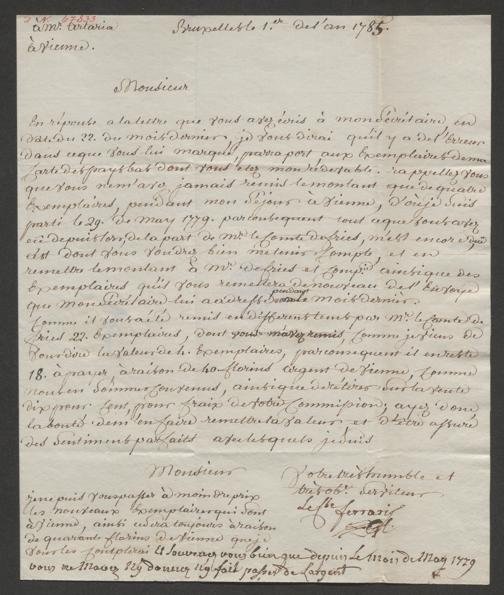 N. 67833
à Mr. Artaria
à Vienne.
Bruxelles le 1.er de l'an 1785.
Monsieur
En réponse a la lettre que vous avez écris à mon Sécrétaire en
date du 22. du mois dernier, je vous dirai qu'il y a de l'Erreur
dans ce que vous lui marqué, par raport aux Exemplaires de ma
Carte des Pays bas dont vous êtez mon rédevable. rappellez vous
que vous ne m'avez jamais remis le montant que de quatre
Exemplaires, pendant mon Séjour a Vienne, d'où je suis
parti le 29. de May 1779. par consequent tout ce que vous avez
eu depuis lors, de la part de Mr. le Comte de fries, m'est encore dû
c'est dont vous voudrez bien me tenir Compte, et en
remettre le montant à Mr. de fries et Comp. ainsi que des
Exemplaires qu'il vous remettra de nouveau de l'Envoye
que mon Sécrétaire lui a addressé pendant le mois dernier.
Comme il vous a été remis en différens tems par Mr. le Comte de
fries 22. Exemplaires, dont vous m'avez remis, comme je viens de
vous dire la valeur de 4. Exemplaires, par consequent il en reste
18. à payer à raison de 40 florins argent de Vienne, Comme
nous en Sommes Convenus, ainsi que de retirer sur la vente
dix pour Cent, pour fraix de votre Commission; ayez donc
la bonté d'en faire remettre la valeur et d'être assuré
des Sentimens parfaits avec lesquels je suis
Monsieur
Votre très humble et
très ob. Serviteur
le Cte de ferraris
je ne puis vous passer à moindre prix
les nouveaux Exemplaires qui sont
à Vienne, ainsi ce sera toujours à raison
de quarante florins de Vienne que je
vous les Compterai et souvenez vous bien que depuis le Mois de May 1779
vous ne m'avez ny donner ny fait passer de l'argent